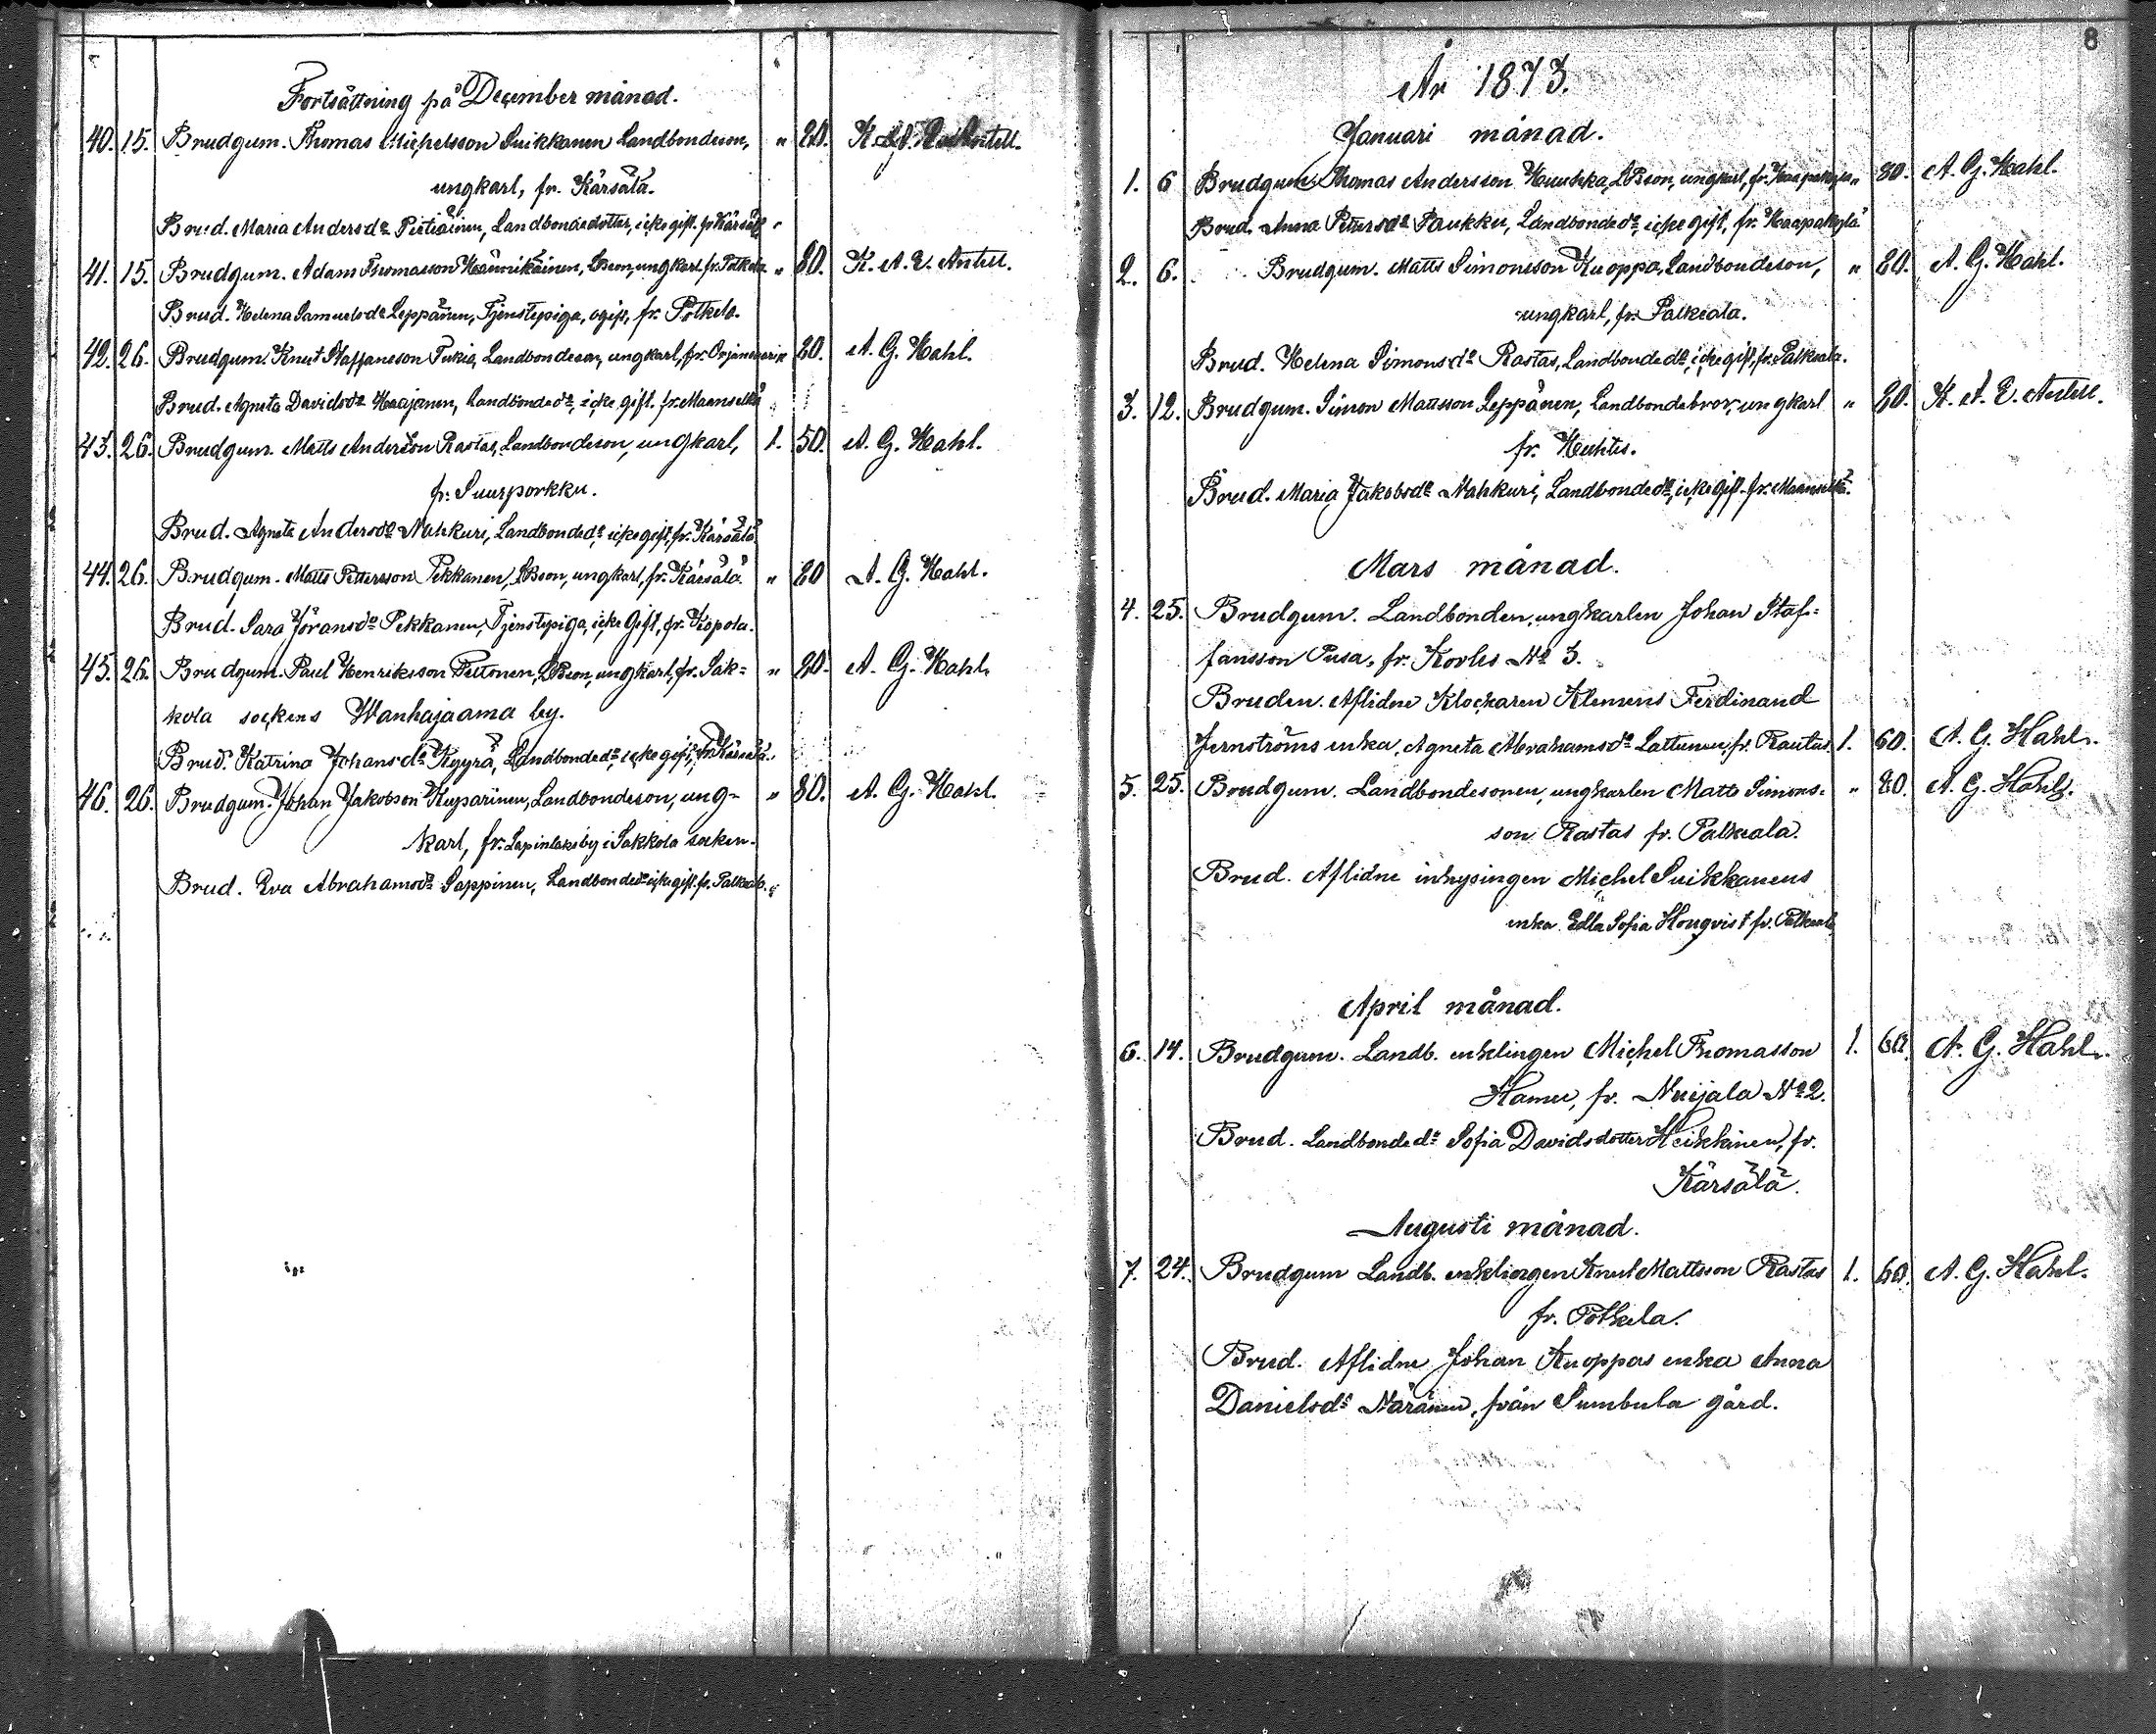 Fortsättning på December månad.
40. 15. Brudgum. Thomas Michelsson Suikkanen Landbondeson, " 80. K. A. E. Antell.
ungkarl, fr. Kärsälä.
Brud. Maria Andersda Pietiäinen, Landbondedotter, icke gift. fr Kärsälä
41. 15. Brudgum. Adam Thomasson Hännikäinen, LBson, ungkarl. fr. Potkela " 80. K. A. E. Antell.
Brud. Helena Samuelsda Leppänen, Tjenstepiga, ogift, fr. Potkela.
42. 26. Brudgum. Knut Staffansson Tukia, Landbondeson, ungkarl, fr. Orjansaari " 80. A. G. Hahl.
Brud. Agneta Davidsda Haajanen, Landbondeda, icke gift. fr. Maanselkä
43. 26. Brudgum. Matts Andersson Rastas, Landbondeson, ungkarl, 1. 50. A. G. Hahl.
fr: Suurporkku.
Brud. Agneta Andersda Nahkuri, Landbondeda, icke gift, fr. Kärsälä
44. 26. Brudgum. Matts Pettersson Pekkanen, LBson, ungkarl, fr. Kärsälä. " 80 A. G. Hahl.
Brud. Sara Jöransda Pekkanen, Tjenstepiga, icke Gift, fr. Kopola.
45. 26. Brudgum. Paul Henriksson Tettonen, LBson, ungkarl, fr. Sak= " 80. A. G. Hahl.
kola sockens Wanhajaama by.
Brud. Katrina Johansda Kyyrä, Landbondeda, icke gift, fr. Kärsälä.
46. 26. Brudgum. Johan Jakobsson Kuparinen, Landbondeson, ung- " 80. A. G. Hahl.
karl, fr. Lapinlaks by i Sakkola socken.
Brud. Eva Abrahamsda Sappinen, Landbondeda icke gift. fr. Palkeala.
8
År 1873.
Januari månad.
1. 6 Brudgum. Thomas Andersson Huuhka, LBson, ungkarl, fr. Haapakylä " 80. A. G. Hahl.
Brud. Anna Pettersda Paukku, Landbondeda, icke gift, fr. Haapakylä
2. 6. Brudgum. Matts Simonsson Kuoppa, Landbondeson, " 80. A. G. Hahl.
ungkarl, fr. Palkeala.
Brud. Helena Simonsda Rastas, Landbondeda, icke gift, fr. Palkeala.
3. 12. Brudgum. Simon Mattsson Leppänen, Landbondebror, ungkarl " 80. K. A. E. Antell.
fr. Huhtis.
Brud. Maria Jakobsda Nahkuri, Landbondeda, icke gift. fr. Maanselkä.
Mars månad.
4. 25. Brudgum. Landbonden, ungkarlen Johan Staf=
fansson Pusa, fr. Korles No 3.
Bruden. Aflidne Klockaren Klemens Ferdinand
Jernströms enka, Agneta Abrahamsda Lattunen, fr. Rautus. 1. 60. A. G. Hahl.
5. 25. Brudgum. Landbondesonen, ungkarlen Matts Simons= " 80. A. G. Hahl.
son Rastas fr. Palkeala.
Brud. Aflidne inhysingen Michel Suikkanens
enka Edla Sofia Honqvist fr. Palkeala
April månad.
6. 14. Brudgum. Landb. enklingen Michel Thomasson 1. 60. A. G. Hahl.
Hamu, fr. Nuijala No 2.
Brud. Landbondeda Sofia Davidsdotter Heikkinen, fr.
Kärsälä.
Augusti månad.
7. 24. Brudgum Landb. enklingen Knut Mattsson Rastas 1. 60. A. G. Hahl.
fr. Potkela.
Brud. Aflidne Johan Kuoppas enka Anna
Danielsda Näränen, från Sumbula gård.